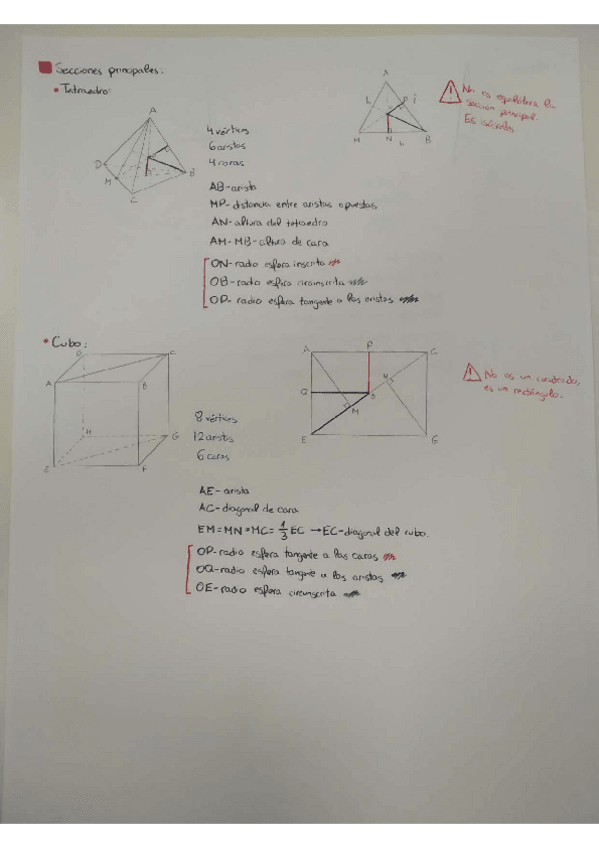 Secciones principales:
• Tetraedro:
A
D
M
C
B
4 vértices
6 aristas
4 caras
A
h
P
M
N
h
B
No es equilátera la
sección principal.
Es isósceles
AB - arista
MP - distancia entre aristas opuestas
AN - altura del tetraedro
AM - MB - altura de cara
ON - radio esfera inscrita
OB - radio esfera circunscrita
OP - radio esfera tangente a las aristas
• Cubo:
D
C
A
B
H
G
E
F
8 vértices
12 aristas
6 caras
A
P
C
Q
N
O
M
E
G
No es un cuadrado,
es un rectángulo.
AE - arista
AC - diagonal de cara
EM = MN = MC = 1/3 EC → EC - diagonal del cubo.
OP - radio esfera tangente a las caras
OQ - radio esfera tangente a las aristas
OE - radio esfera circunscrita